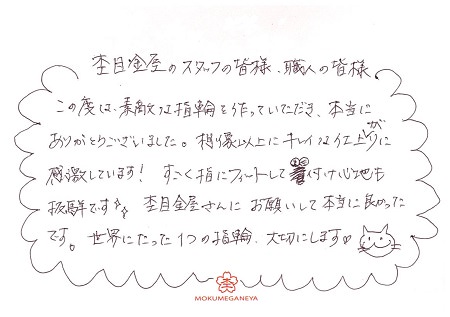 杢目金屋のスタッフの皆様、職人の皆様
この度は、素敵な指輪を作っていただき、本当に
ありがとうございました。想像以上にキレイな仕上がりに
感激しています！すごく指にフィートして着け心地も
抜群です。杢目金屋さんにお願いして本当に良かった
です。世界にたった1つの指輪、大切にします
MOKUMEGANEYA